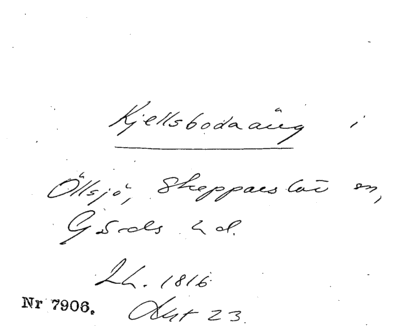 Kjellsbodaäng i
Öllsjö, Skepparslöv sn,
Gärds hd.
Lh. 1816
Nr 7906. Akt 23.